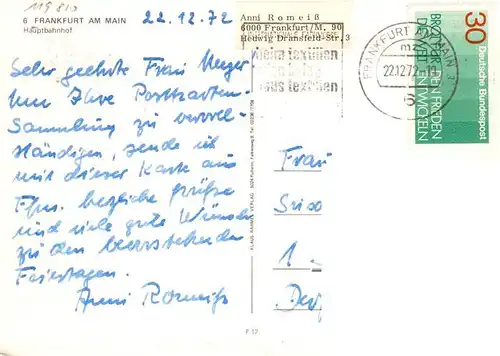 119 810
6 FRANKFURT AM MAIN
Hauptbahnhof
22.12.72
Sehr geehrte Frau Meyer!
Um Ihre Postkarten-
Sammlung zu vervoll-
ständigen, sende ich
mit dieser Karte aus
Ffm. herzliche Grüße
und viele gute Wünsche
zu den bevorstehenden
Feiertagen.
Anni Romeiß
Anni Romeiß
6000 Frankfurt/M. 90
Hedwig Dransfeld-Str. 3
textilien
textilien
FRANKFURT AM MAIN
22.12.72
30
Deutsche Bundespost
BROT FÜR DIE WELT
DEN FRIEDEN
ENTWICKELN
Frau
1
KLAUS VERLAG
F 17